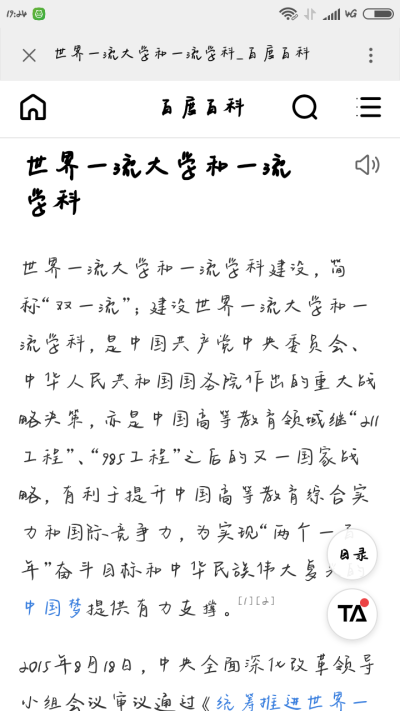 17:24
4G
世界一流大学和一流学科_百度百科
百度百科
世界一流大学和一流
学科
世界一流大学和一流学科建设，简
称“双一流”；建设世界一流大学和一
流学科，是中国共产党中央委员会、
中华人民共和国国务院作出的重大战
略决策，亦是中国高等教育领域继“211
工程”、“985工程”之后的又一国家战
略，有利于提升中国高等教育综合实
力和国际竞争力，为实现“两个一百
年”奋斗目标和中华民族伟大复兴
中国梦提供有力支撑。[1][2]
目录
TA
2015年8月18日，中央全面深化改革领导
小组会议审议通过《统筹推进世界一